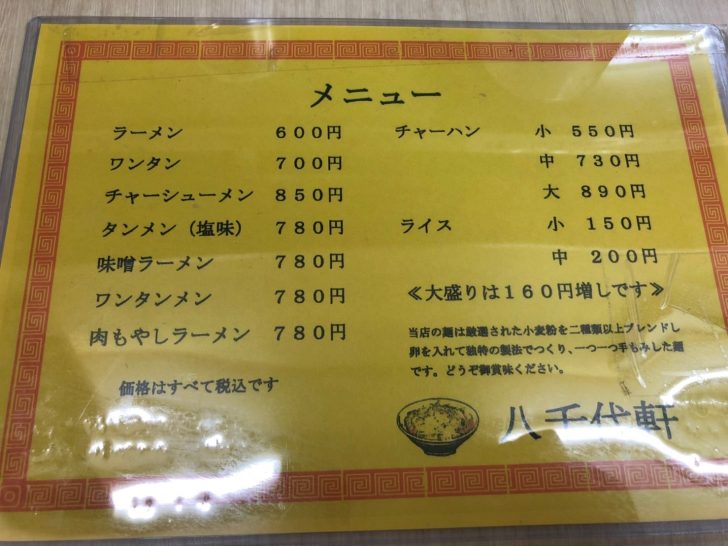 メニュー
ラーメン 600円
ワンタン 700円
チャーシューメン 850円
タンメン(塩味) 780円
味噌ラーメン 780円
ワンタンメン 780円
肉もやしラーメン 780円
価格はすべて税込です
チャーハン 小 550円
中 730円
大 890円
ライス 小 150円
中 200円
≪大盛りは160円増しです≫
当店の麺は厳選された小麦粉を二種類以上ブレンドし
卵を入れて独特の製法でつくり、一つ一つ手もみした麺
です。どうぞ御賞味ください。
八千代軒